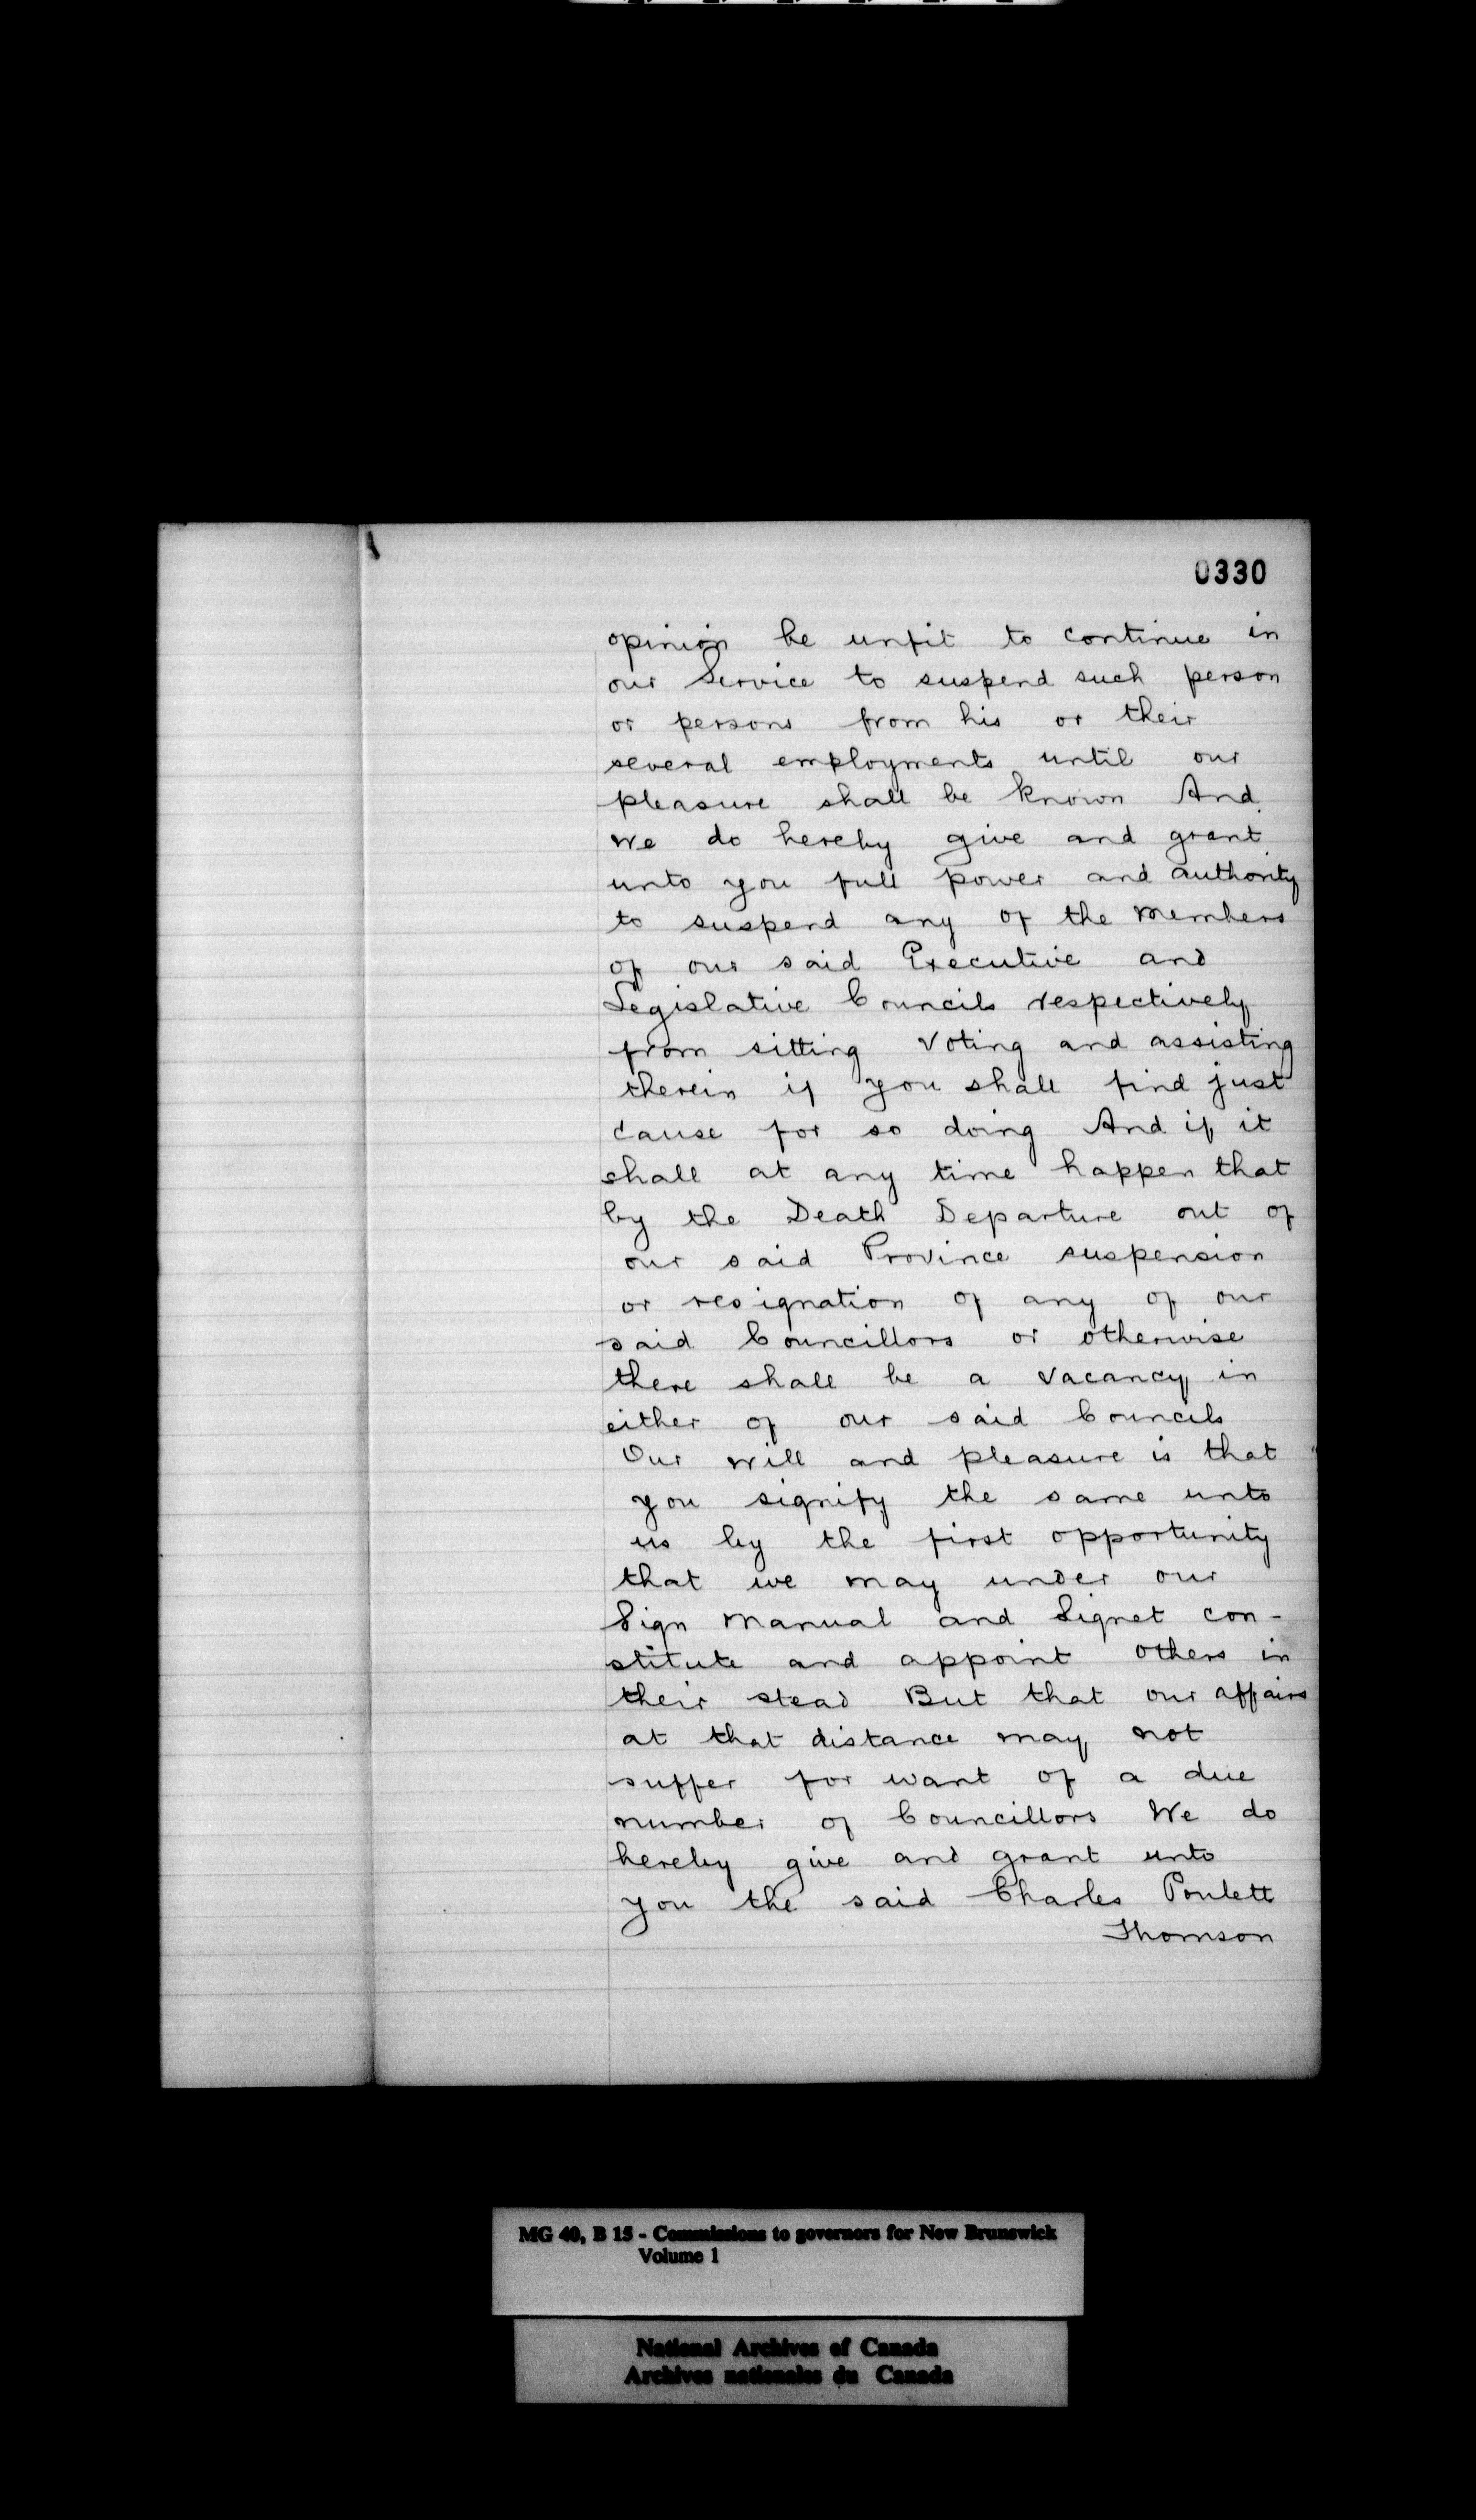 0330
opinion be unfit to continue in
our Service to suspend such person
or persons from his or their
several employments until our
pleasure shall be known And
we do hereby give and grant
unto you full power and authority
to suspend any of the members
of our said Executive and
Legislative Councils respectively
from sitting voting and assisting
therein if you shall find just
cause for so doing And if it
shall at any time happen that
by the Death Departure out of
our said Province suspension
or resignation of any of our
said Councillors or otherwise
there shall be a vacancy in
either of our said Councils
Our will and pleasure is that
you signify the same unto
us by the first opportunity
that we may under our
Sign Manual and Signet con-
stitute and appoint others in
their stead But that our affairs
at that distance may not
suffer for want of a due
number of Councillors We do
hereby give and grant unto
you the said Charles Poulett
Thomson
MG 40, B 15 - Commissions to governors for New Brunswick
Volume 1
National Archives of Canada
Archives nationales du Canada